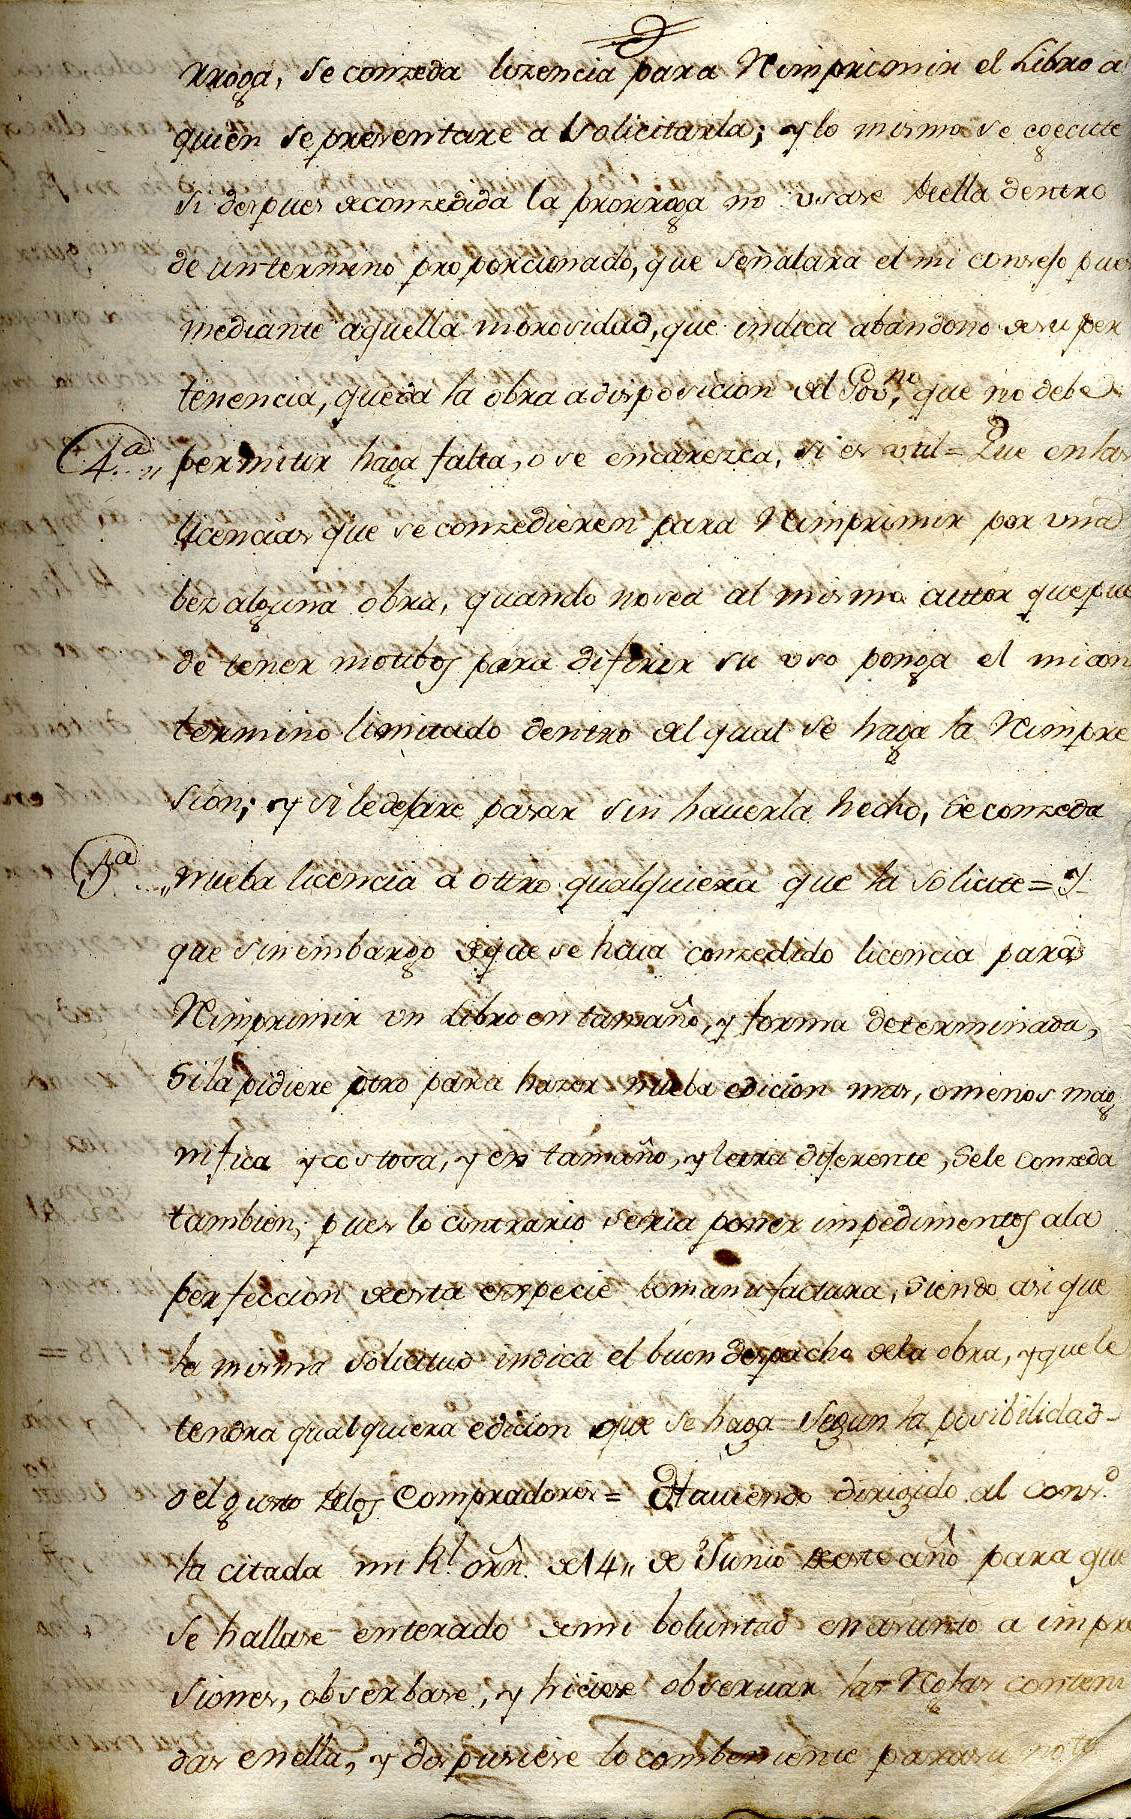 rroga, se conzeda lizencia para Rimprimir el Libro a
quien se presentare a Solicitarla; y lo mismo se egecute
si despues de conzedida la prorroga no usare de ella dentro
de un termino proporcionado, que señalara el mi consejo pues
mediante aquella morosidad, que indica abandono de su per
tenencia, queda la obra a disposicion del Gov.no que no debe
4.a „ permitir haga falta, o se encarezca, si es util = Que en las
licencias que se conzedieren para Rimprimir por una
bez alguna obra, quando no sea al mismo autor que pue
de tener motibos para diferir su uso ponga el mi con
termino limitado dentro del qual se haga la Rimpre
sion; y si le dejare pasar sin hauerla hecho, se conzeda
5.a „ nueba licencia a ottro qualquiera que la solicite = Y
que sin embargo de que se haia conzedido licencia para
Rimprimir un Libro en tamaño, y forma determinada,
Si la pidiere otro para hazer nueba edicion mas, o menos mag
nifica y costosa, y en tamaño, y letra diferente, Se le conzeda
tambien; pues lo contrario seria poner impedimentos a la
perfeccion de esta especie de manufactura, siendo asi que
la misma solicitud indica el buen despacho de la obra, y que le
tendra qualquiera edicion que se haga segun la posibilidad
o el gusto de los Compradores = Hauiendo dirigido al Cons.o
la citada mi R.l orn. de 14„ de Junio de este año para que
se hallase enterado de mi boluntad en asunto a impre
siones, obserbase, y hiciese obseruar las Reglas conteni
das en ella, y dispusiese lo combeniente para su